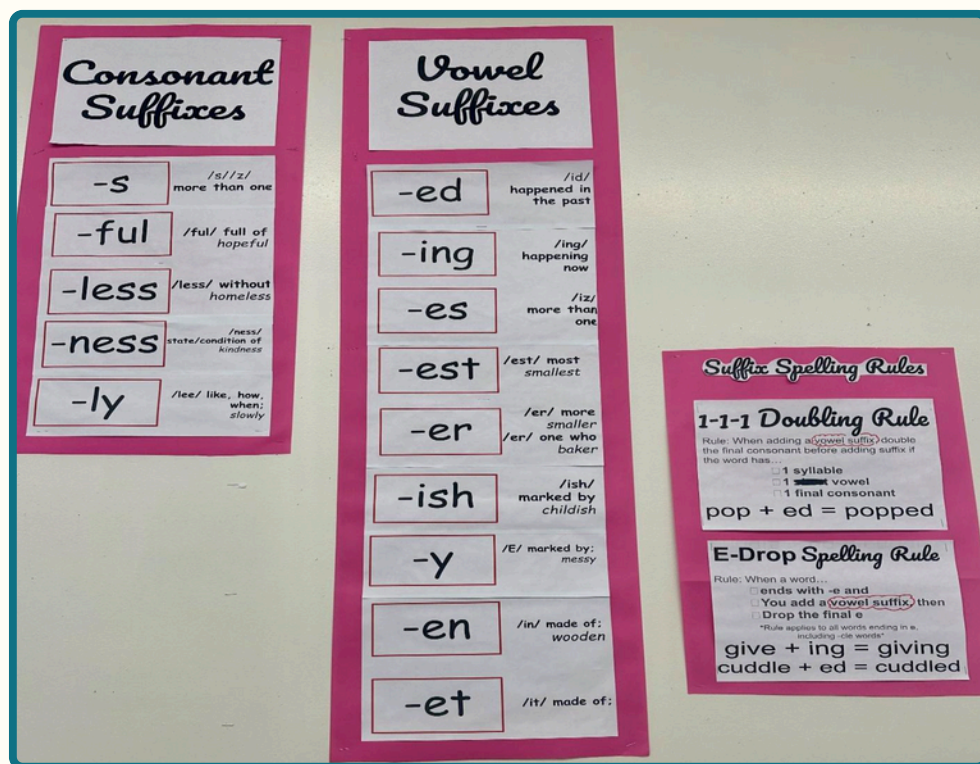 Consonant
Suffixes
-s
/s//z/
more than one
-ful
/ful/ full of
hopeful
-less
/less/ without
homeless
-ness
/ness/
state/condition of
kindness
-ly
/lee/ like, how,
when;
slowly
Vowel
Suffixes
-ed
/id/
happened in
the past
-ing
/ing/
happening
now
-es
/iz/
more than
one
-est
/est/ most
smallest
-er
/er/ more
smaller
/er/ one who
baker
-ish
/ish/
marked by
childish
-y
/E/ marked by;
messy
-en
/in/ made of;
wooden
-et
/it/ made of;
Suffix Spelling Rules
1-1-1 Doubling Rule
Rule: When adding a vowel suffix double
the final consonant before adding suffix if
the word has...
1 syllable
1 vowel
1 final consonant
pop + ed = popped
E-Drop Spelling Rule
Rule: When a word...
ends with -e and
You add a vowel suffix then
Drop the final e
*Rule applies to all words ending in e,
including -cle words*
give + ing = giving
cuddle + ed = cuddled